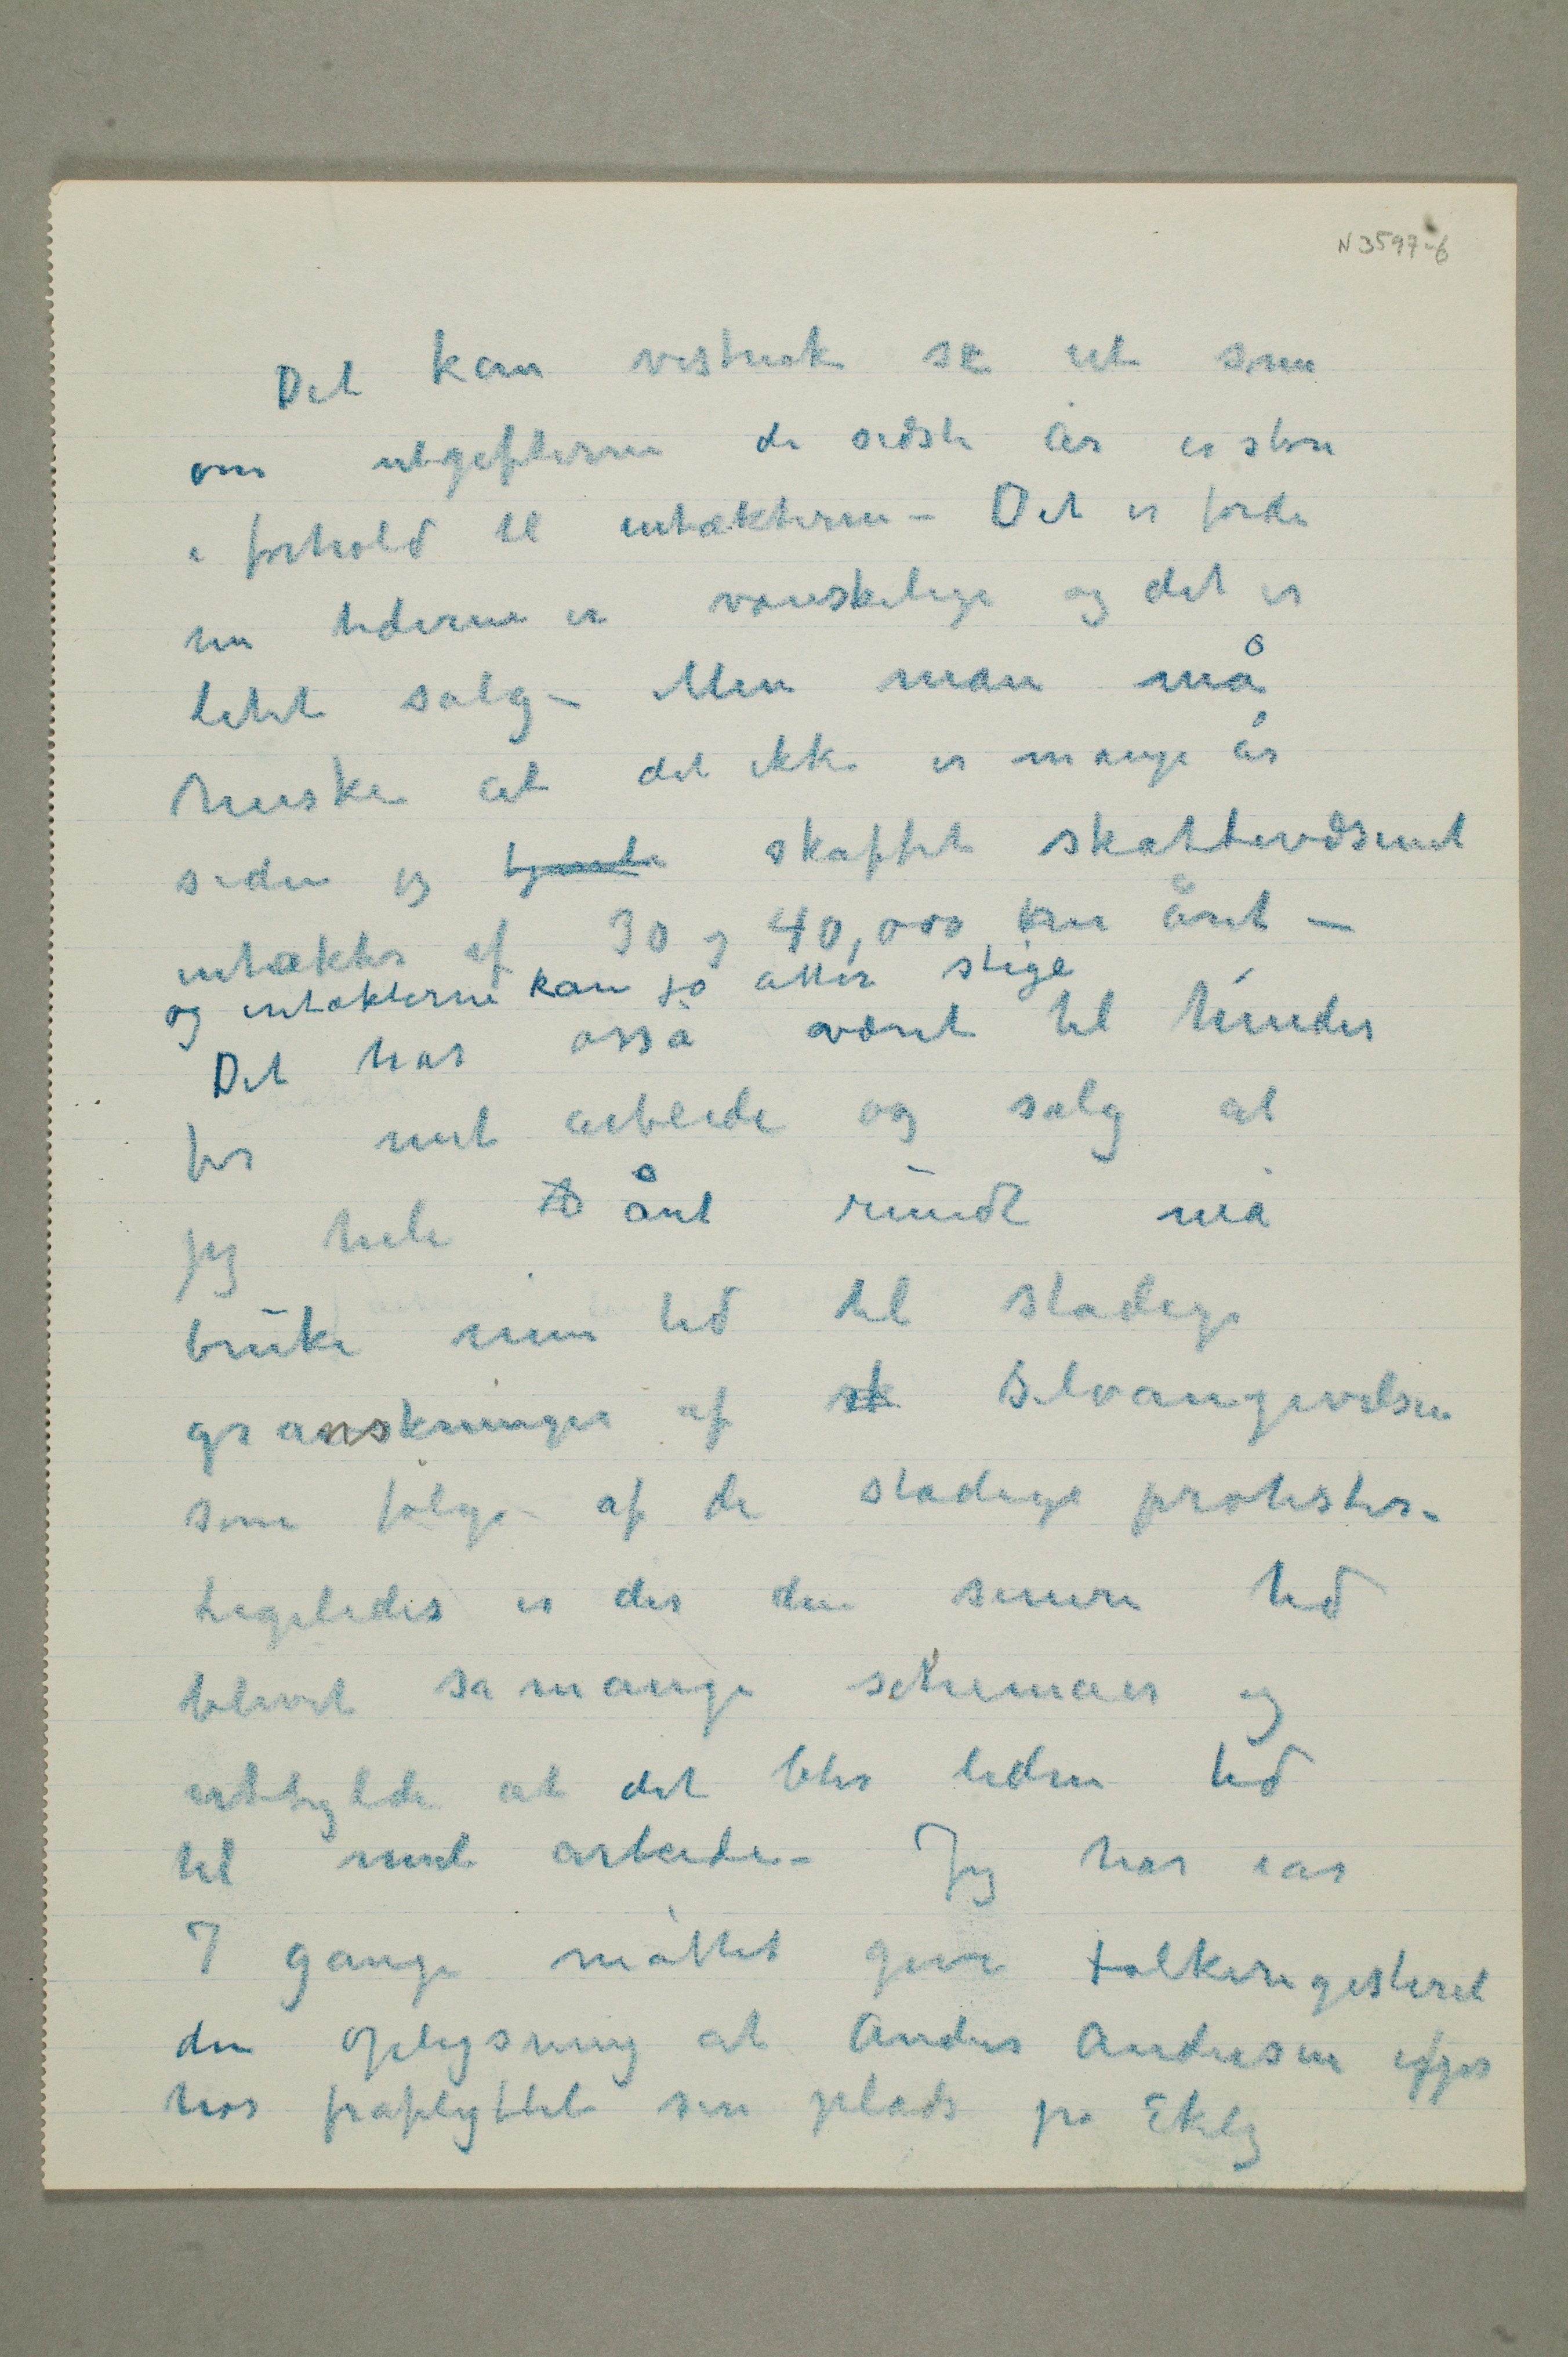 N 3597-6
Det kan vistnok se ut som
om utgifterne de sidste år er store
i forhold til intækterne – Det er fordi
nu tiderne er vanskelige og det er
litet salg – Men man må
huske at det ikke er mange år
siden jeg tjente skaffet skattevæsenet
intækter af 30 og 40,000 kr året –
og intækterne kan jo atter stige
Det har osså været til hinder
for mit arbeide og salg at
jeg hele året rundt må
bruke min tid til stadige
granskninger af sk Selvangivelsen
som følge af de stadige protester –
Ligeledes er der den senere tid
blevet så mange schemaer og
utfylde at det blir liden tid
til mit arbeide – Jeg har iår
7 gange måttet give folkeregisteret
den oplysning at Anders Andersen
har fraflyttet sin plads på Ekely